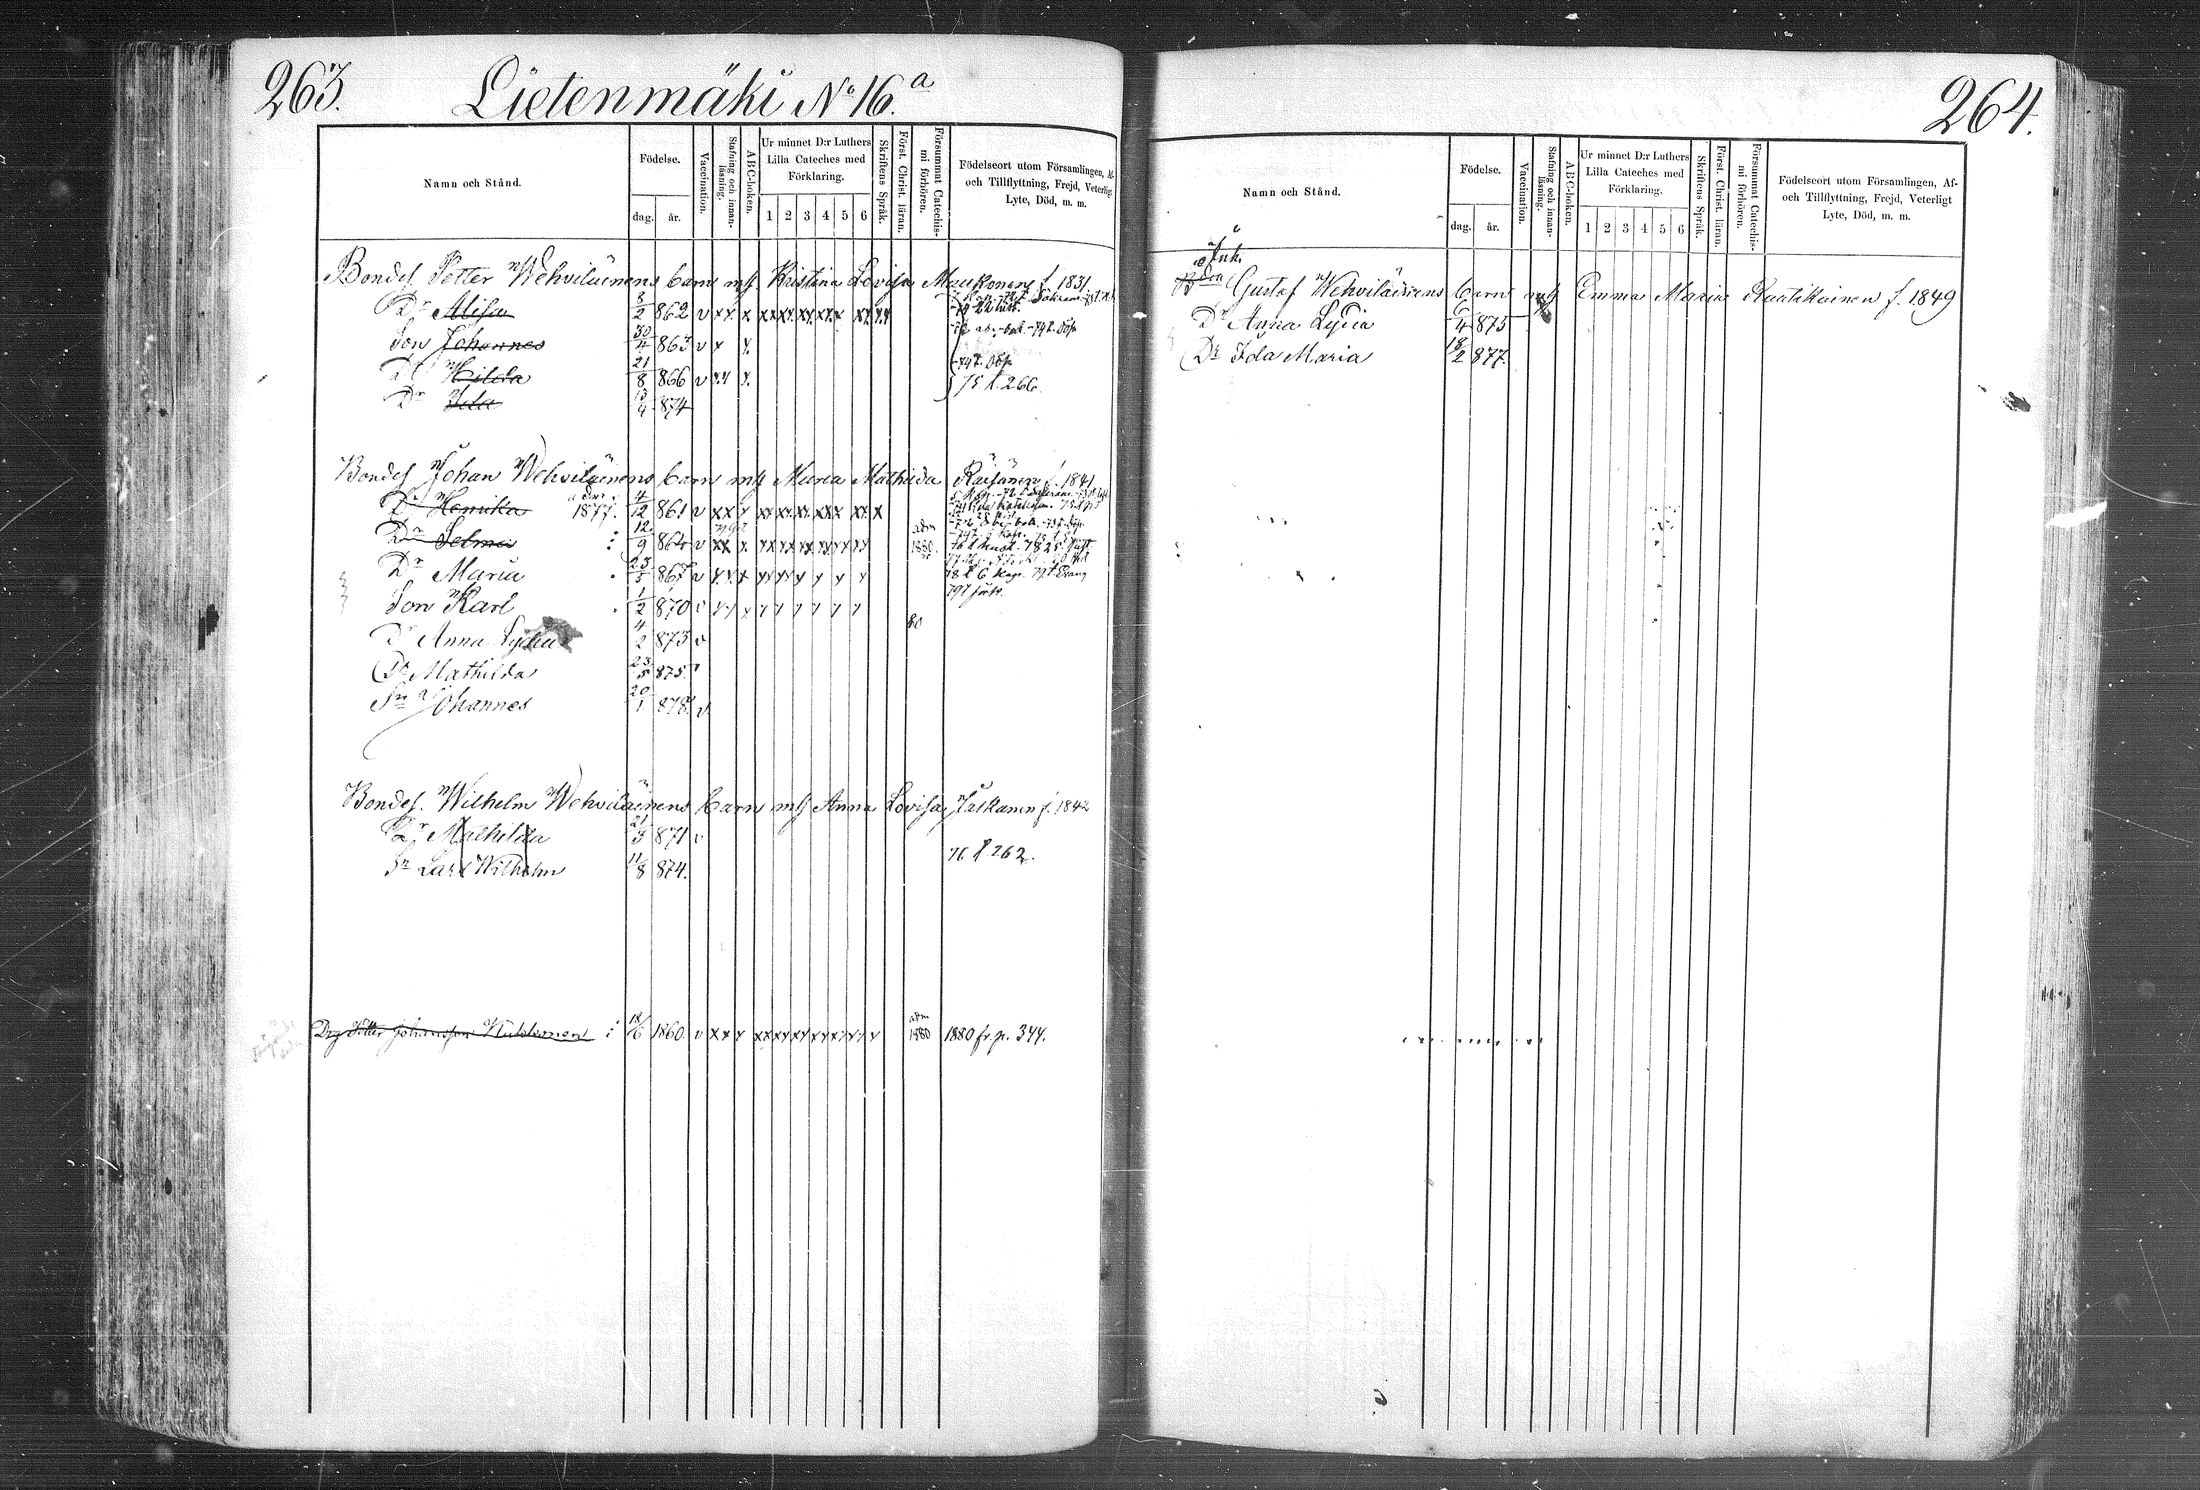 263.
Lietenmäki No 16.a
Namn och Stånd.
Födelse.
dag. år.
Vaccination.
Stafning och innanläsning.
ABC-boken.
Ur minnet D:r Luthers Lilla Cateches med Förklaring.
1 2 3 4 5 6
Skriftens Språk.
Först. Christ. läran.
Försummat Catechismi förhören.
Födelseort utom Församlingen, Af- och Tillflyttning, Frejd, Veterligt Lyte, Död, m. m.
Bondes. Petter Wehviläinens barn m/h Kristina Lovisa Maukonen f. 1831.
Dr Alisa 3/2 862 v
Son Johannes 30/4 863 v x
Dr Hilda 21/8 866 v
Dr Ida 13/4 874
75 t. 266.
Bondes. Johan Wehviläinens barn m/h Maria Mathilda Räisänen f. 1841
Dr Henrika 1877. 4/12 861 v
Dr Selma 12/9 864 v adm 1880.
Dr Maria 23/5 867 v
Son Karl 1/2 870 v
80
Dr Anna Lydia 4/2 873 v
Dr Mathilda 23/5 875
Sn Johannes 20/1 878 v.
Bondes. Wilhelm Wehviläinens barn m/h Anna Lovisa f. 1842
Dr Mathilda 21/3 871 v
Sn Lars Wilhelm 11/8 874.
76 t 262.
Drg Petter Johansson 18/6 1860. v adm 1880 1880 fr. p. 344.
264.
Namn och Stånd.
Födelse.
dag. år.
Vaccination.
Stafning och innanläsning.
ABC-boken.
Ur minnet D:r Luthers Lilla Cateches med Förklaring.
1 2 3 4 5 6
Skriftens Språk.
Först. Christ. läran.
Försummat Catechismi förhören.
Födelseort utom Församlingen, Af- och Tillflyttning, Frejd, Veterligt Lyte, Död, m. m.
Enk.
Gustaf Wehviläinens barn m/h Emma Maria Raatikainen f. 1849
Dr Anna Lydia 6/4 875
Dr Ida Maria 18/2 877.